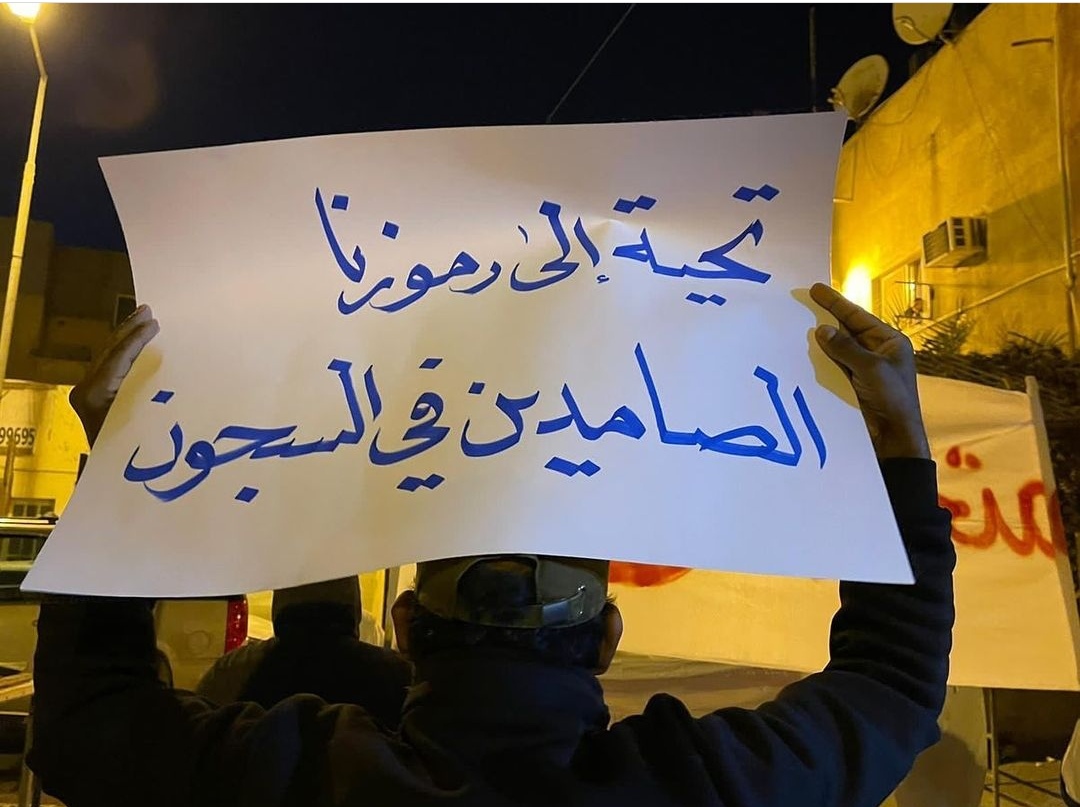 تحية إلى رموزنا
الصامدين في السجون
99695